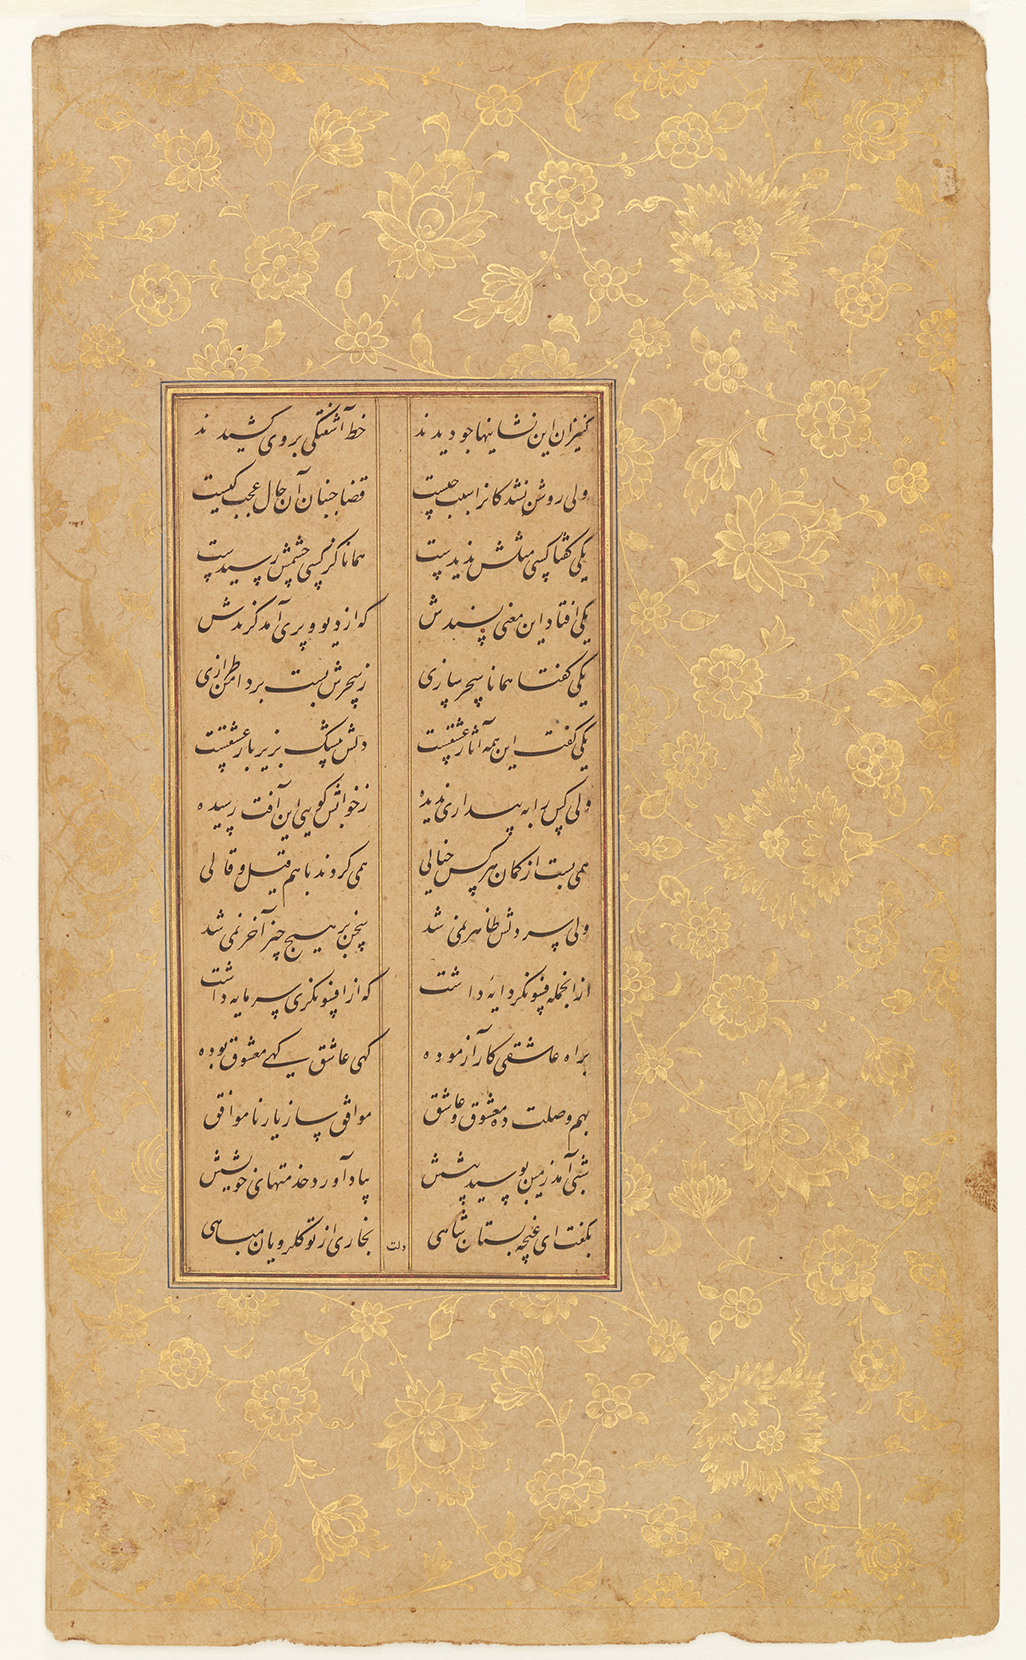 کنیزان این نشانیها چو دیدند خط آشفتگی بروی کشیدند
ولی روشن نشد کانرا سبب چیست قضا جنبان آن حال عجب کیست
یکی گفتا کسی مثلش ندیدست همانا کز کسی چشمش رسیدست
یکی افتاد این معنی پسندش که از دیو و پری آمد گزندش
یکی گفتا همانا سحر سازی ز سحرش بست بر طرازی
یکی گفت این همه آثار عشقست دلش بیشک بزیر بار عشقست
ولی کس را به بیداری ندیده ز خوابش گویی این آفت رسیده
همی بست از گمان هر کس خیالی همی کردند با هم قیل و قالی
ولی سر دلش ظاهر نمی شد سخن بر هیچ چیز آخر نمی شد
از آنجمله فسونگر دایهٔ داشت که از افسونگری سرمایه داشت
براه عاشقی کار آزموده گهی عاشق گهی معشوق بوده
بهم وصلت ده معشوق و عاشق موافق ساز یار ناموافق
شبی آمد زمین بوسید پیشش بیاد آورد خدمتهای خویشش
بگفت ای غنچه بستان شاهی بخاری از تو گلرویان مباهی
دلت